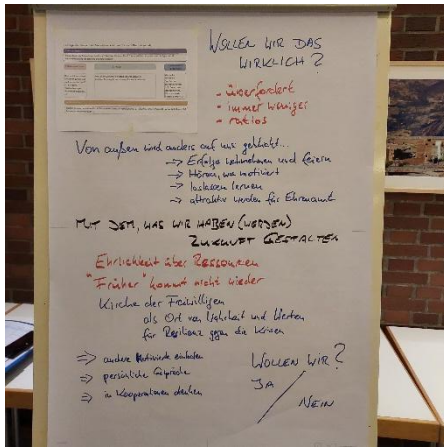 WOLLEN WIR DAS
WIRKLICH?
- überfordert
- immer weniger
- ratlos
Von außen wird anders auf uns geblickt...
→ Erfolge wahrnehmen und feiern
→ Hören, was motiviert
→ loslassen lernen
→ attraktiv werden für Ehrenamt
MIT DEM, WAS WIR HABEN (WERDEN)
ZUKUNFT GESTALTEN
Ehrlichkeit über Ressourcen
"Früher" kommt nicht wieder
Kirche der Freiwilligen
als Ort von Wahrheit und Werten
für Resilienz gegen die Krisen
⇒ andere Motivierte einladen
⇒ persönliche Gespräche
⇒ in Kooperationen denken
WOLLEN WIR?
JA
NEIN